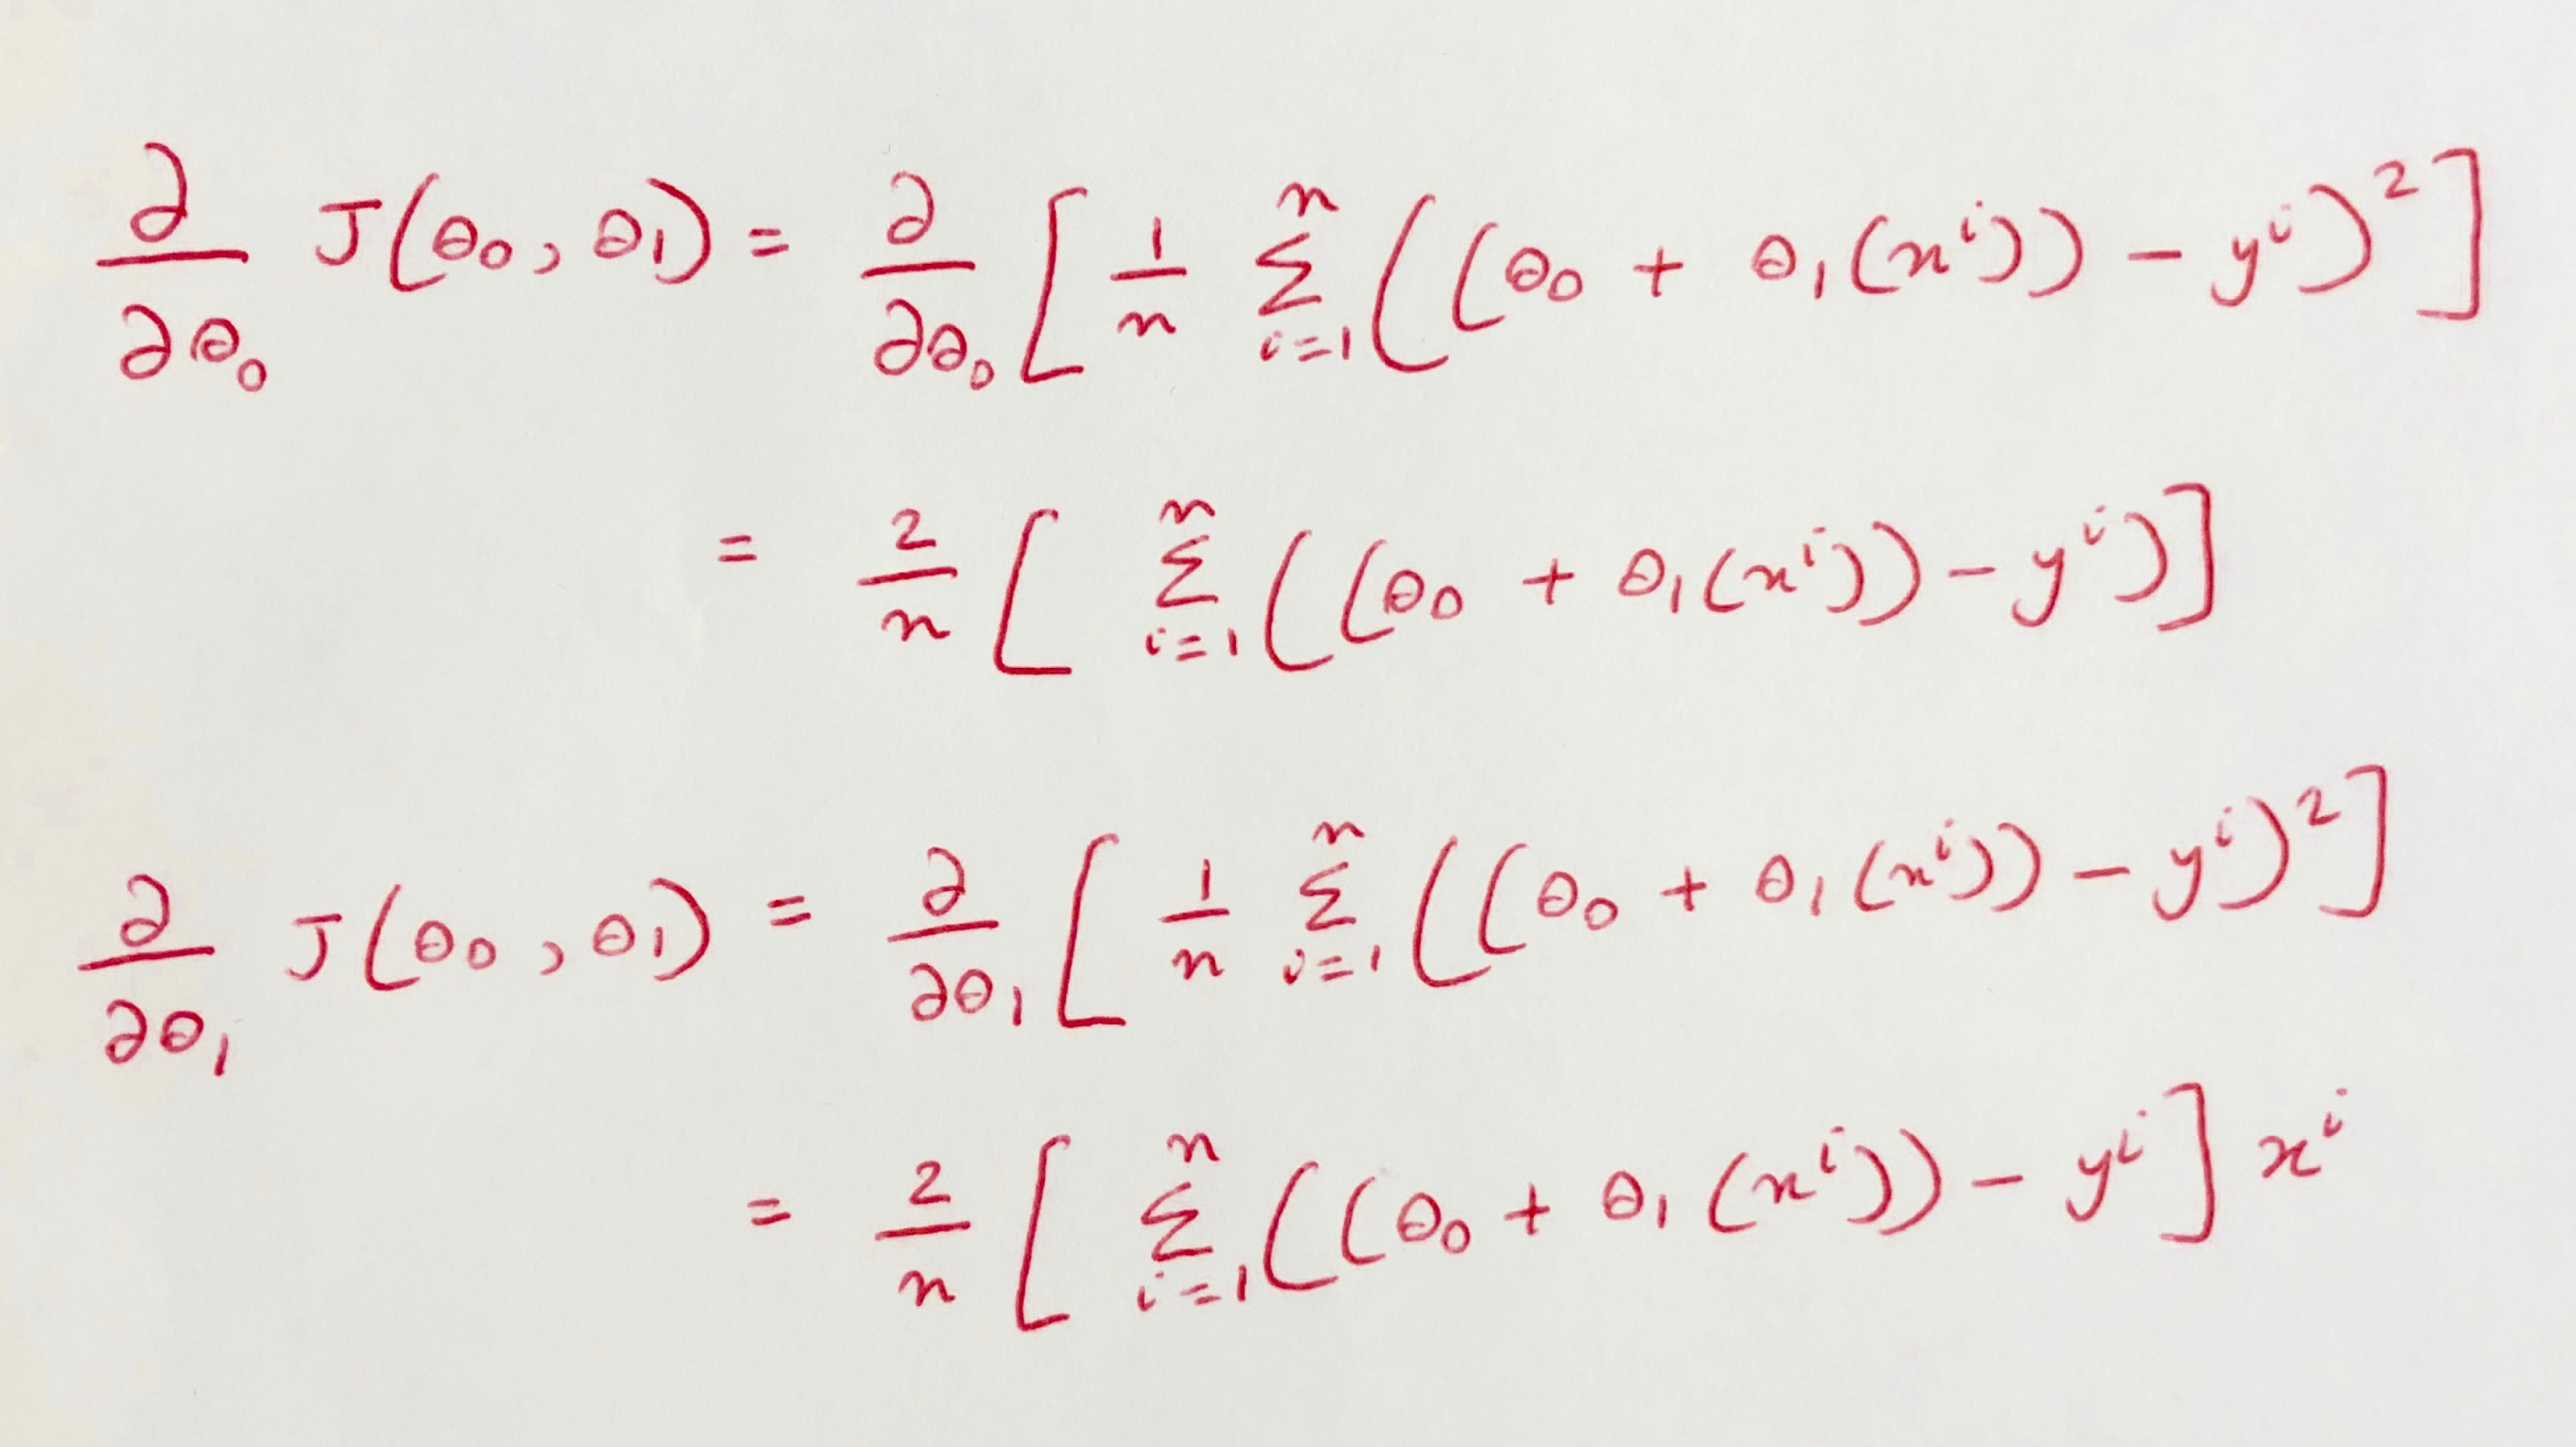 ∂/∂θ₀ J(θ₀, θ₁) = ∂/∂θ₀ [ 1/n Σᵢ₌₁ⁿ ((θ₀ + θ₁(xⁱ)) − yⁱ)² ]
= 2/n [ Σᵢ₌₁ⁿ ((θ₀ + θ₁(xⁱ)) − yⁱ) ]
∂/∂θ₁ J(θ₀, θ₁) = ∂/∂θ₁ [ 1/n Σᵢ₌₁ⁿ ((θ₀ + θ₁(xⁱ)) − yⁱ)² ]
= 2/n [ Σᵢ₌₁ⁿ ((θ₀ + θ₁(xⁱ)) − yⁱ ] xⁱ